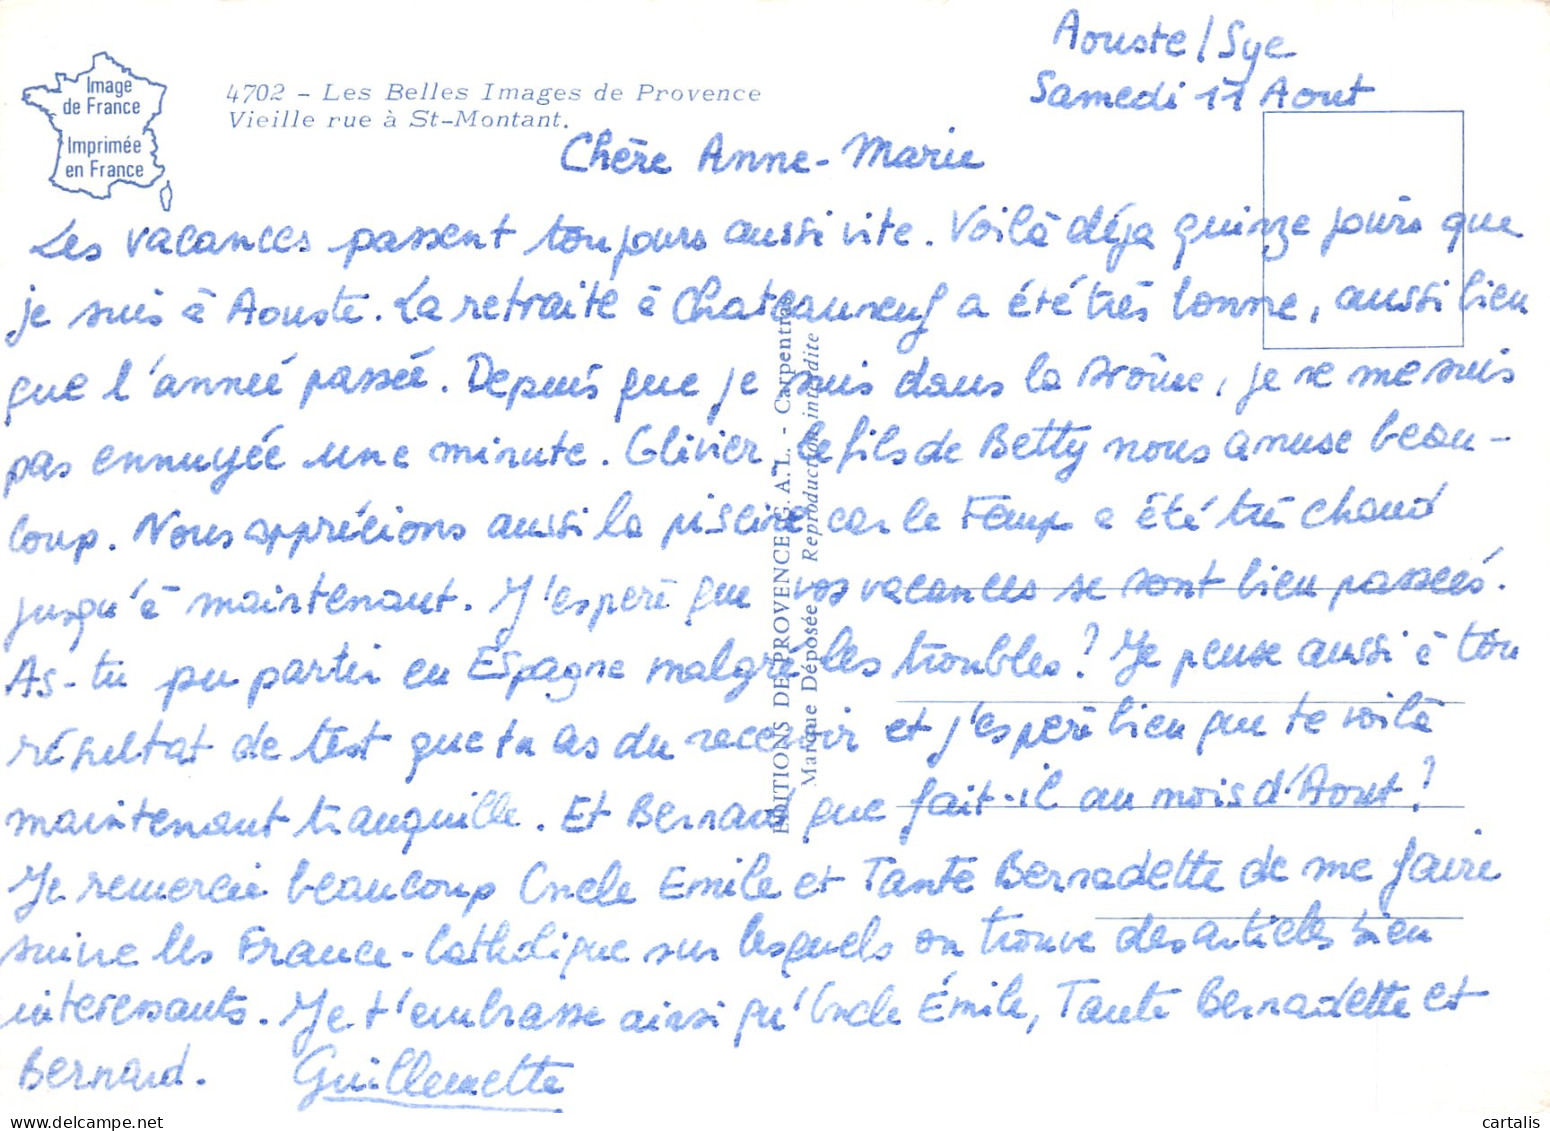 Aouste/Sye
Samedi 11 Aout
Image
de France
Imprimée
en France
4702 - Les Belles Images de Provence
Vieille rue à St-Montant.
Chère Anne-Marie
Les vacances passent toujours aussi vite. Voilà déja quinze jours que
je suis à Aouste. La retraite à Chateauneuf a été très bonne, aussi bien
que l'année passée. Depuis que je suis dans la Drôme, je ne me suis
pas ennuyée une minute. Olivier, le fils de Betty nous amuse beau-
coup. Nous apprécions aussi la piscine car le Temps a été très chaud
jusqu'à maintenant. J'espère que vos vacances se sont bien passées.
As-tu pu partir en Espagne malgré les troubles? Je pense aussi à ton
résultat de test que tu as du recevoir et j'espère bien que te voilà
maintenant tranquille. Et Bernard que fait-il au mois d'Aout?
Je remercie beaucoup Oncle Emile et Tante Bernadette de me faire
suivre les France-Catholique sur lesquels on trouve des articles bien
interessants. Je t'embrasse ainsi qu'Oncle Émile, Tante Bernadette et
Bernard. Guillemette
EDITIONS DE PROVENCE S.A.R.L. - Carpentras
Marque Déposée Reproduction interdite
cartalis